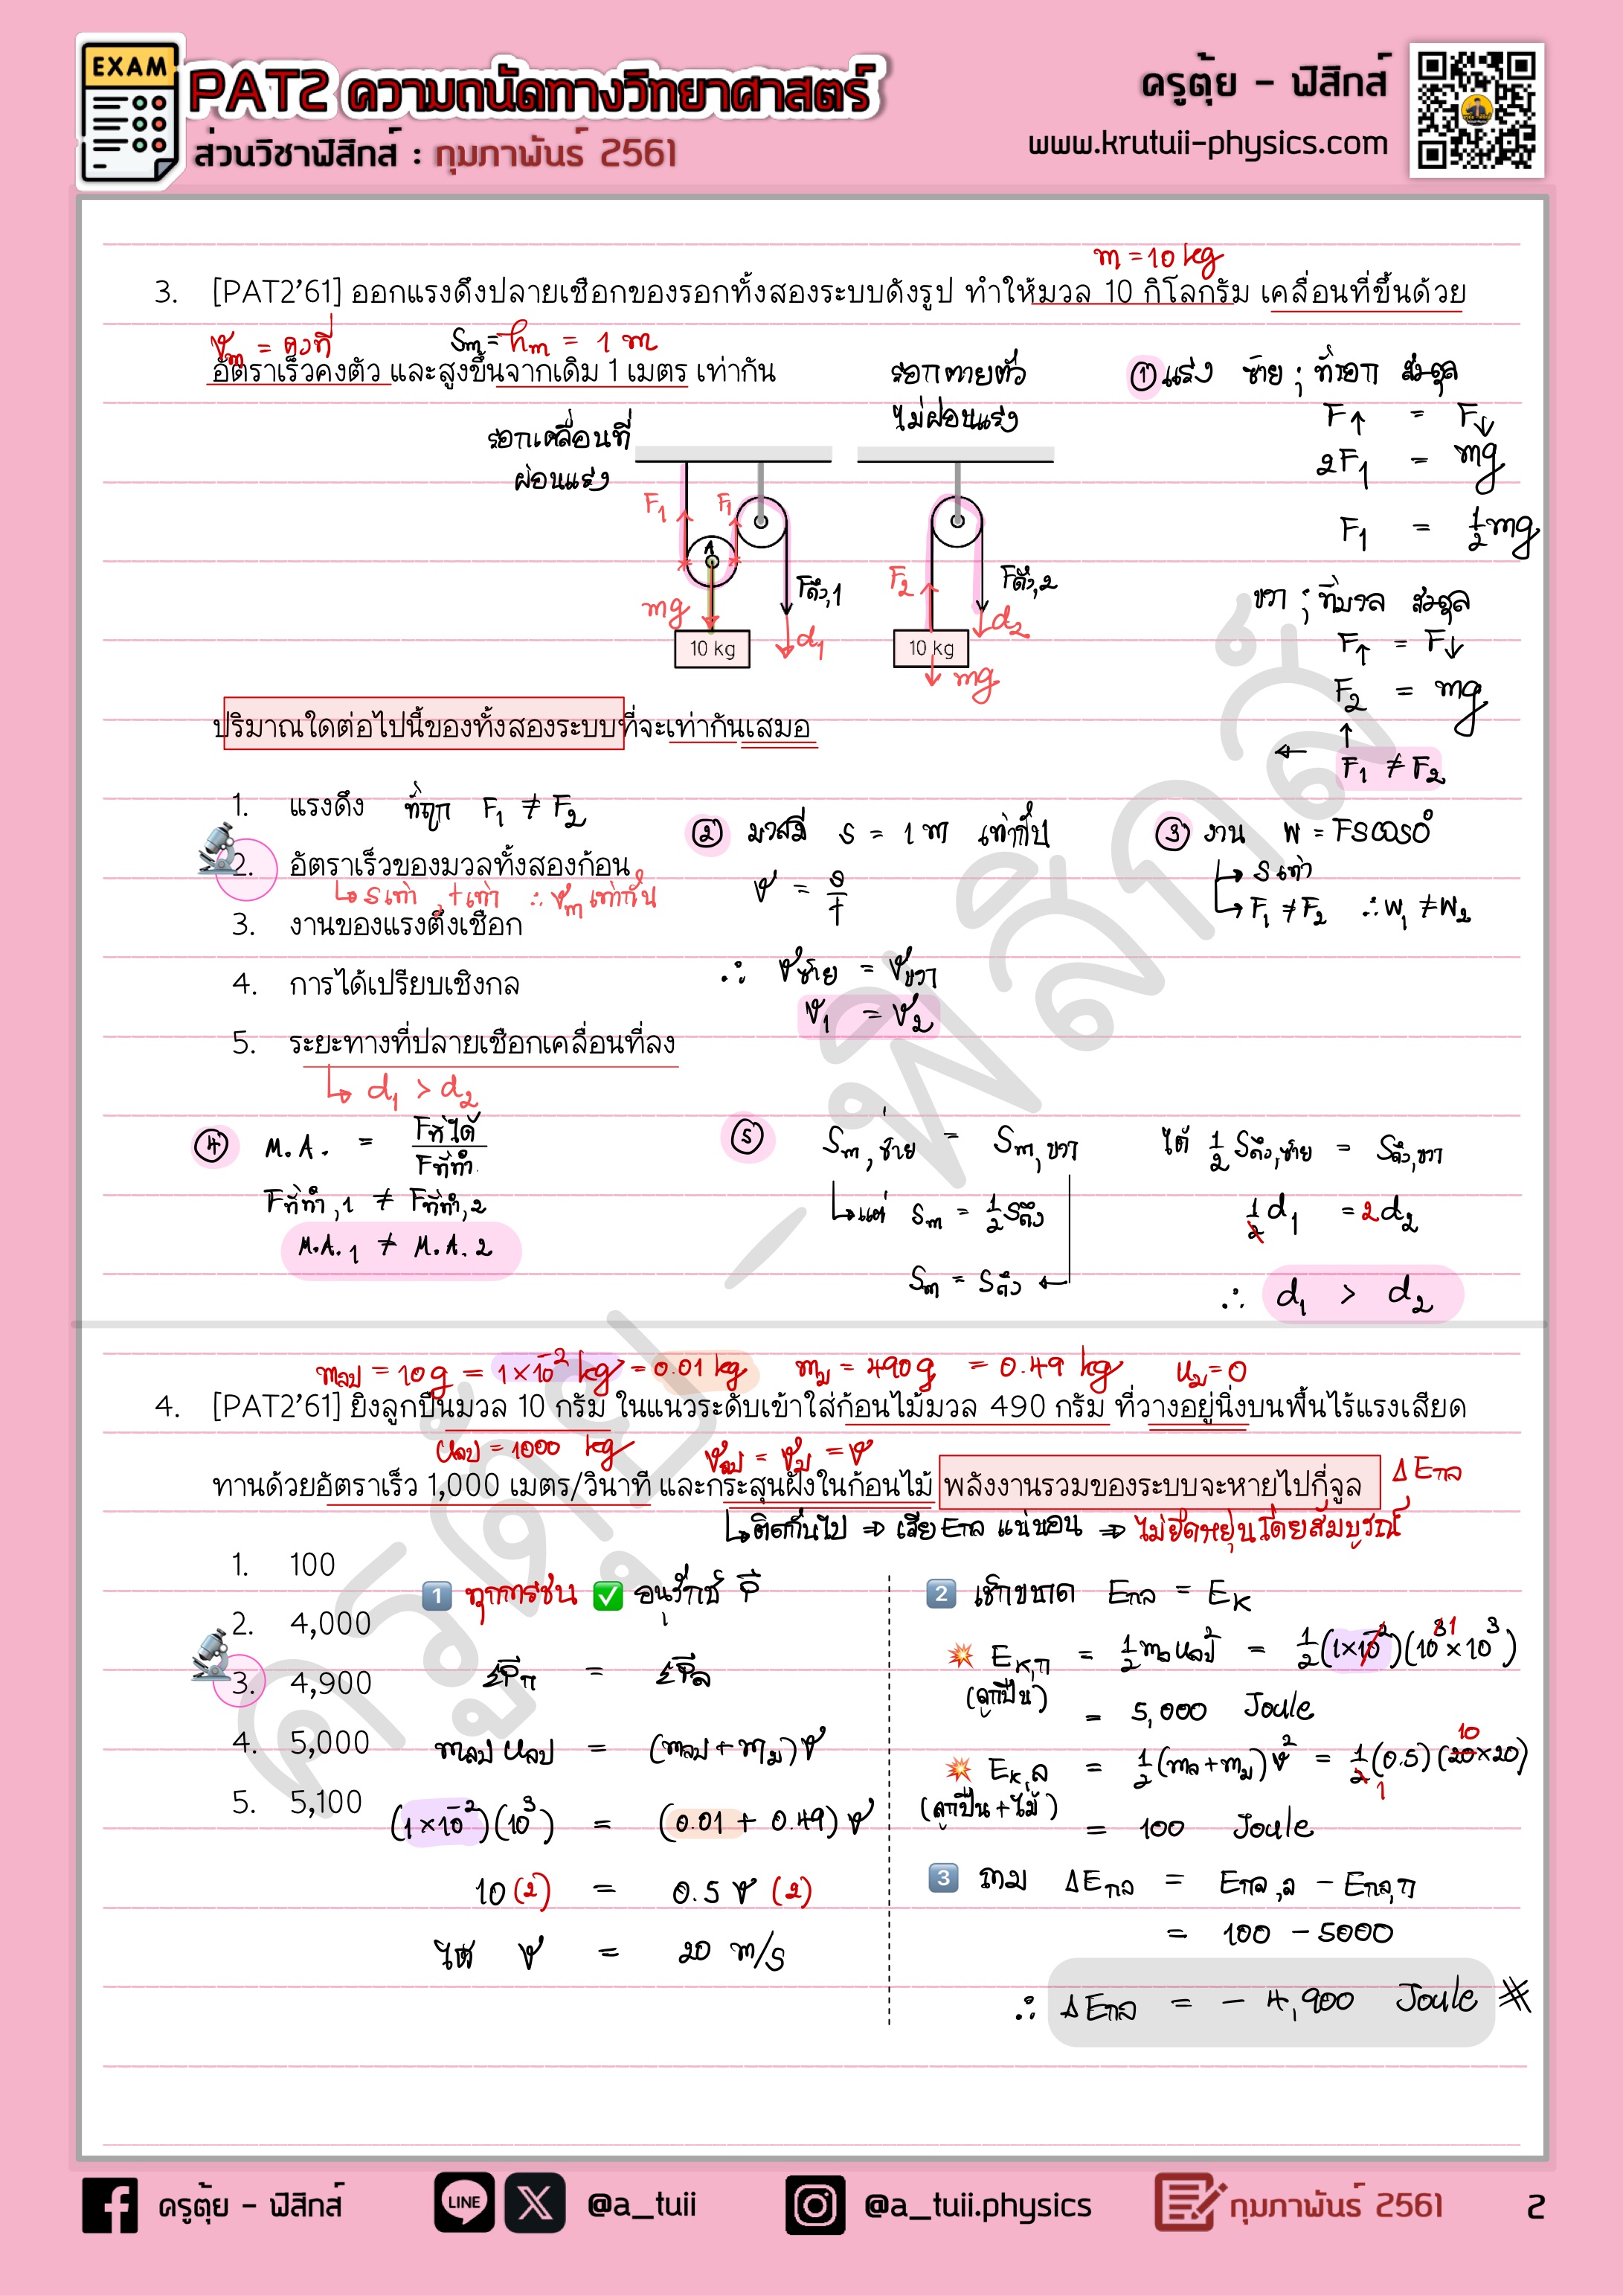 EXAM
PAT2 ความถนัดทางวิทยาศาสตร์
ส่วนวิชาฟิสิกส์ : กุมภาพันธ์ 2561
ครูตุ้ย - ฟิสิกส์
www.krutuii-physics.com
m = 10 kg
3. [PAT2'61] ออกแรงดึงปลายเชือกของรอกทั้งสองระบบดังรูป ทำให้มวล 10 กิโลกรัม เคลื่อนที่ขึ้นด้วย
vm = คงที่ Sm = hm = 1 m
อัตราเร็วคงตัว และสูงขึ้นจากเดิม 1 เมตร เท่ากัน
รอกเคลื่อนที่
ผ่อนแรง
รอกตายตัว
ไม่ผ่อนแรง
F1 F1 Fดึง,1
mg d1
10 kg
F2 Fดึง,2
d2
10 kg
mg
① แรง ซ้าย ; ที่รอก สมดุล
F↑ = F↓
2F1 = mg
F1 = 1/2 mg
ขวา ; ที่มวล สมดุล
F↑ = F↓
F2 = mg
F1 ≠ F2
ปริมาณใดต่อไปนี้ของทั้งสองระบบที่จะเท่ากันเสมอ
1. แรงดึง F1 ≠ F2
2. อัตราเร็วของมวลทั้งสองก้อน
↳ s เท่า , t เท่า ∴ vm เท่ากัน
3. งานของแรงตึงเชือก
4. การได้เปรียบเชิงกล
5. ระยะทางที่ปลายเชือกเคลื่อนที่ลง
↳ d1 > d2
② มวลมี s = 1 m เท่ากัน
v = s/t
∴ vซ้าย = vขวา
v1 = v2
③ งาน W = FS cos0
↳ s เท่า
↳ F1 ≠ F2 ∴ W1 ≠ W2
④ M.A. = Fที่ได้/Fที่ทำ
Fที่ทำ,1 ≠ Fที่ทำ,2
M.A.1 ≠ M.A.2
⑤ Sm,ซ้าย = Sm,ขวา
↳ แต่ Sm = 1/2 Sดึง
Sm = Sดึง
ได้ 1/2 Sดึง,ซ้าย = Sดึง,ขวา
1/2 d1 = 2d2
∴ d1 > d2
mลป = 10 g = 1×10⁻² kg = 0.01 kg mม = 490 g = 0.49 kg uม = 0
4. [PAT2'61] ยิงลูกปืนมวล 10 กรัม ในแนวระดับเข้าใส่ก้อนไม้มวล 490 กรัม ที่วางอยู่นิ่งบนพื้นไร้แรงเสียด
uลป = 1000 kg vลป = vม = v
ทานด้วยอัตราเร็ว 1,000 เมตร/วินาที และกระสุนฝังในก้อนไม้ พลังงานรวมของระบบจะหายไปกี่จูล ΔEกล
↳ ติดกันไป ⇒ เสีย Eกล แน่นอน ⇒ ไม่ยืดหยุ่นโดยสมบูรณ์
1. 100
2. 4,000
3. 4,900
4. 5,000
5. 5,100
1 ทุกการชน ✅ อนุรักษ์ P
ΣPก = ΣPล
mลป uลป = (mลป + mม)v
(1×10⁻²)(10³) = (0.01 + 0.49)v
10 (2) = 0.5 v (2)
ได้ v = 20 m/s
2 เช็กขนาด Eกล = EK
EK,ก = 1/2 mลป uลป² = 1/2 (1×10⁻²)(10³×10³)
(ลูกปืน)
= 5,000 Joule
EK,ล = 1/2 (mล + mม) v² = 1/2 (0.5)(20×20)
(ลูกปืน+ไม้)
= 100 Joule
3 ถาม ΔEกล = Eกล,ล − Eกล,ก
= 100 − 5000
∴ ΔEกล = − 4,900 Joule #
ครูตุ้ย - ฟิสิกส์
ครูตุ้ย - ฟิสิกส์
LINE
@a_tuii
@a_tuii.physics
กุมภาพันธ์ 2561
2